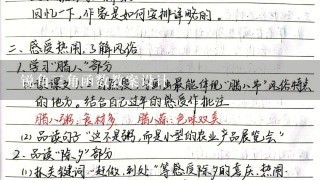 回忆一下,作家是如何安排详略的。
二、感受热闹,了解风俗
1.学习"腊八"部分
最能体现"腊八节"风俗特点
的地方。结合自己过年的感受作批注
腊八粥:食材多 腊八蒜:色味双美
(2)品读句子"这不是粥,而是小型的农业产品展览会"
2.品读"除夕"部分
(1)抓关键词"赶做、到处"等感受除夕的喜庆、热闹